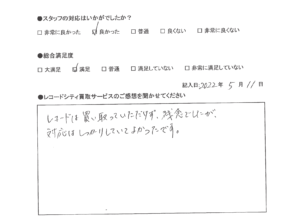 ●スタッフの対応はいかがでしたか?
□非常に良かった ☑良かった □普通 □良くない □非常に良くない
●総合満足度
□大満足 ☑満足 □普通 □満足していない □非常に満足していない
記入日 2022年 5月 11日
●レコードシティ買取サービスのご感想を聞かせてください
レコードは買い取っていただけず、残念でしたが、
対応はしっかりしていてよかったです。